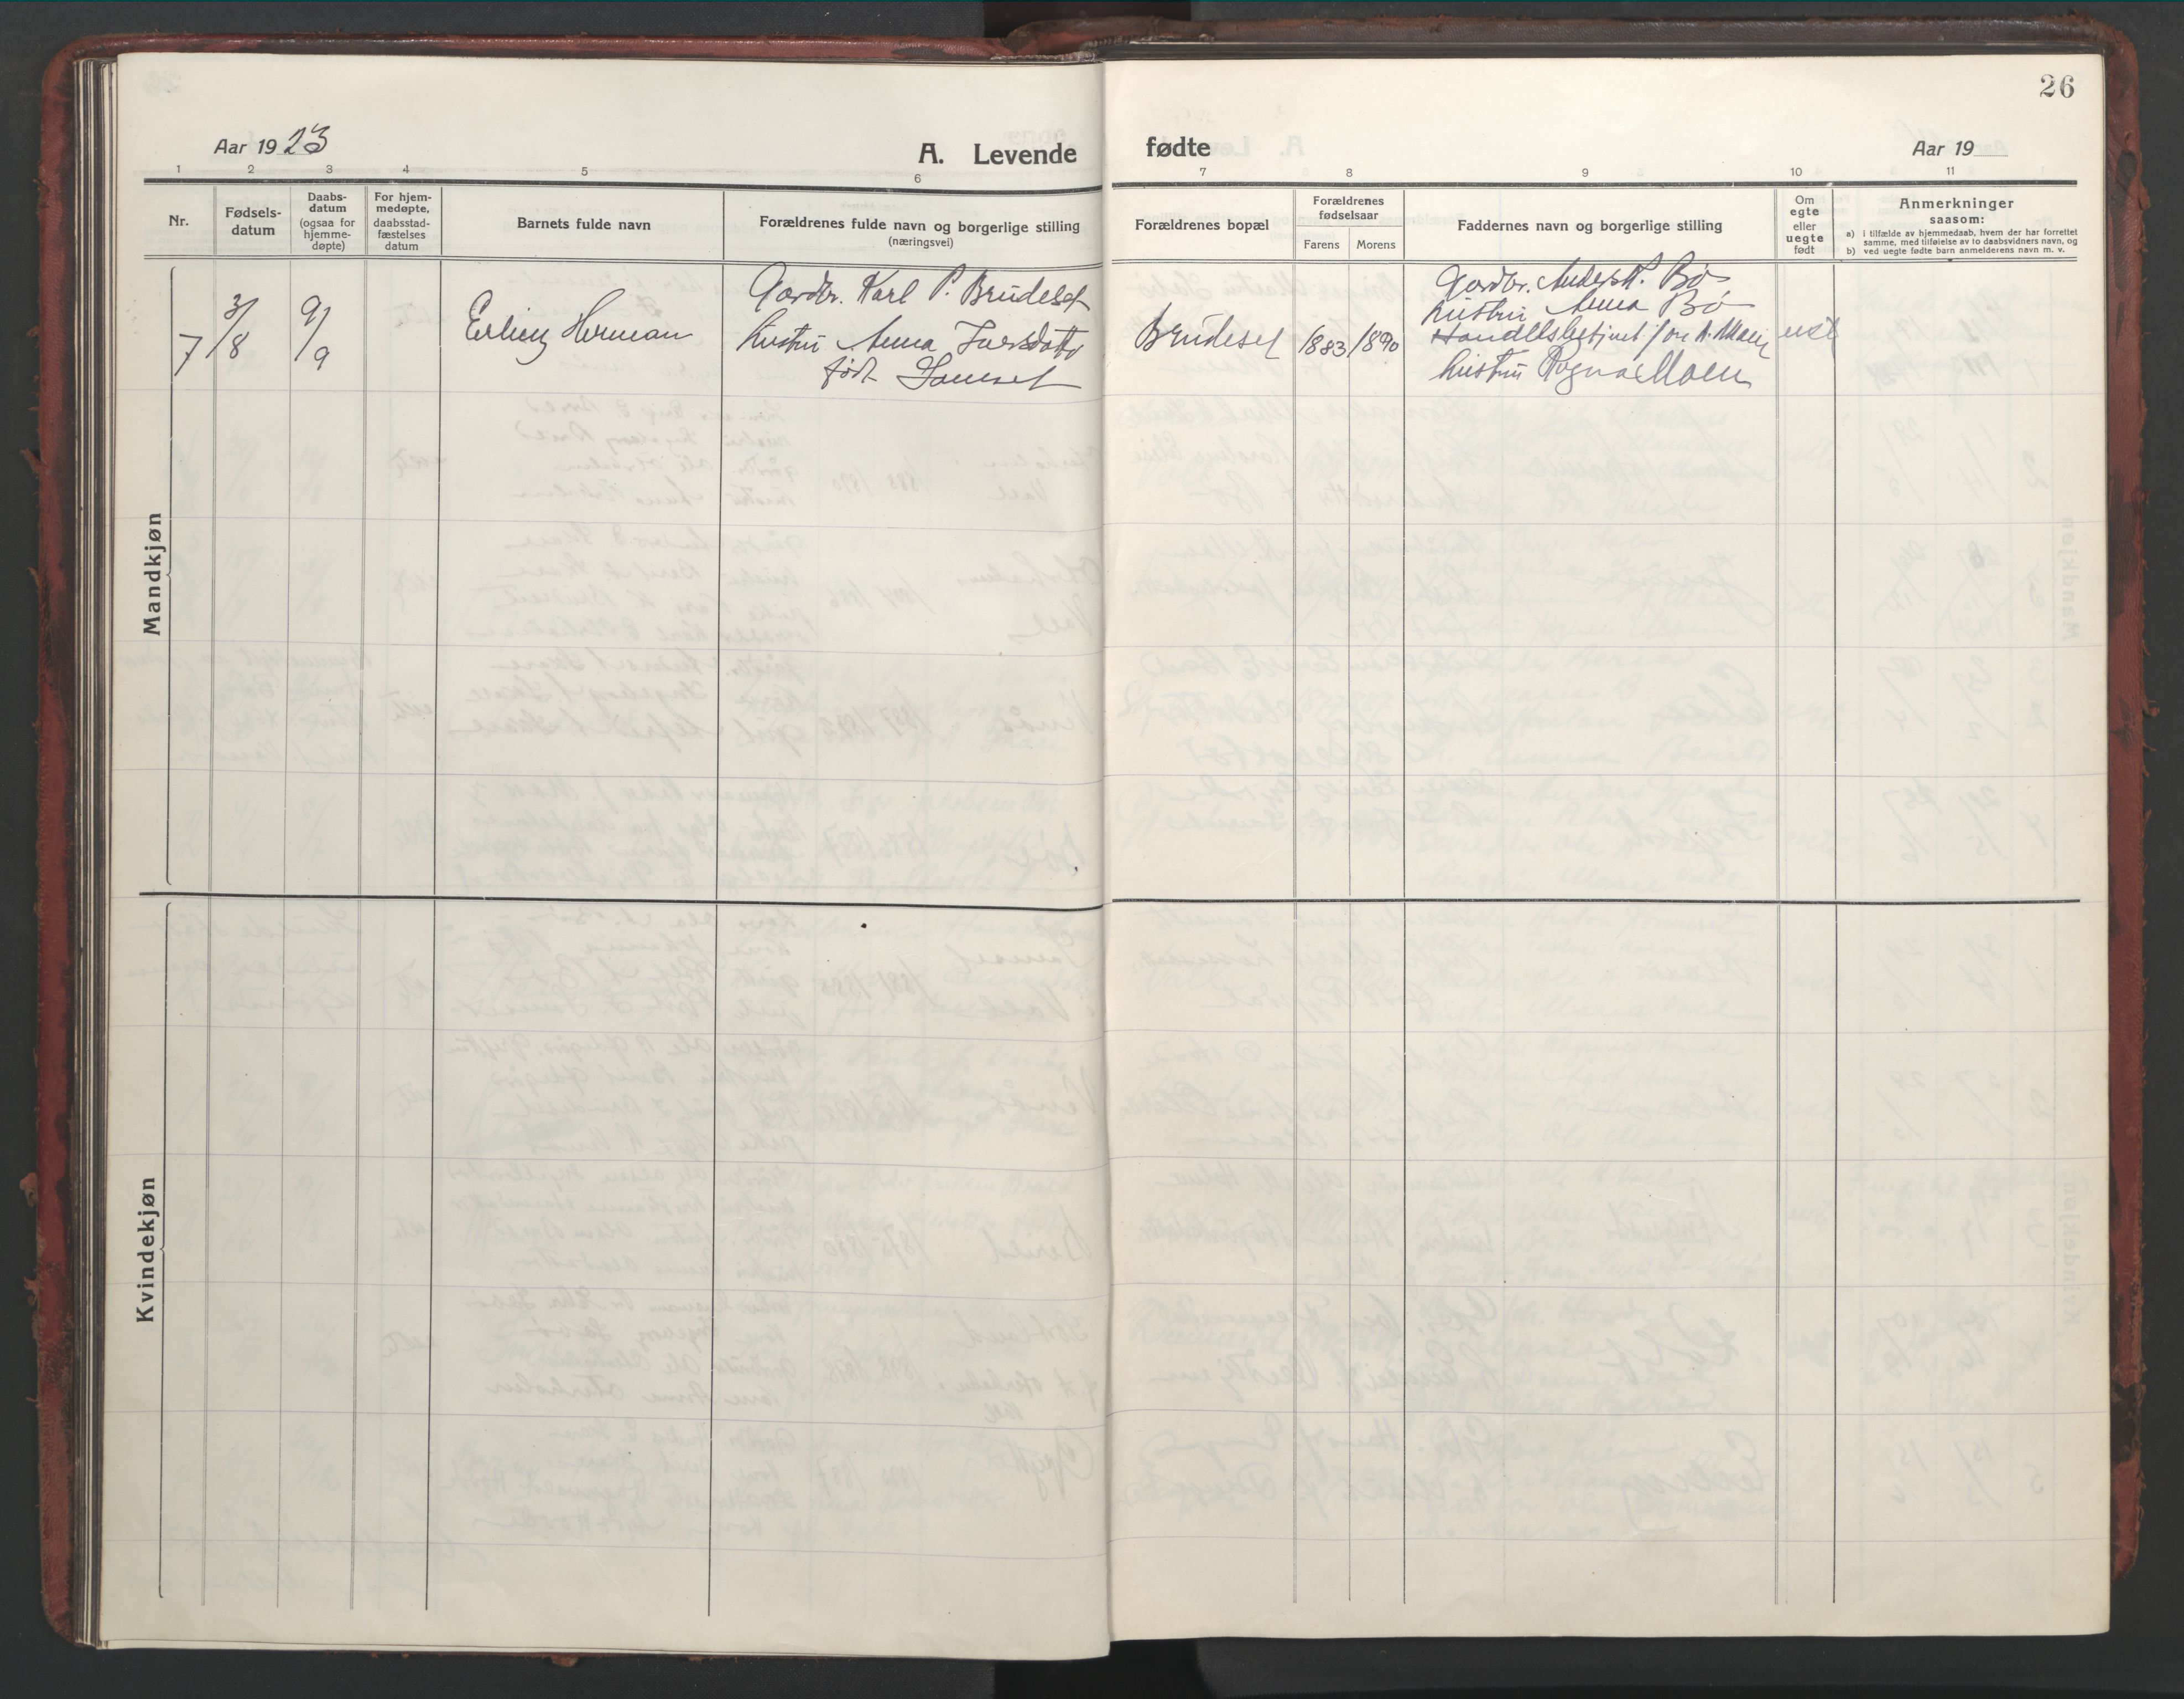 26
Aar 1923
A. Levende
fødte
Aar 19
1 2 3 4 5 6 7 8 9 10 11
Nr.
Fødsels-
datum
Daabs-
datum
(ogsaa for
hjemme-
døpte)
For hjem-
medøpte,
daabsstad-
fæstelses
datum
Barnets fulde navn
Forældrenes fulde navn og borgerlige stilling
(næringsvei)
Forældrenes bopæl
Forældrenes
fødselsaar
Farens
Morens
Faddernes navn og borgerlige stilling
Om
egte
eller
uegte
født
Anmerkninger
saasom:
a) i tilfælde av hjemmedaab, hvem der har forrettet
samme, med tilføielse av to daabsvidners navn, og
b) ved uegte fødte barn anmelderens navn m. v.
Mandkjøn
7
3/8
9/9
Erling Herman
Gardbr. Karl P. Brudeset
hustru Anna Iversdatter
født
Brudeset
1883
1890
Gardbr. Anders P. Bø
hustru Anna Bø
Handelsbetjent
hustru Ragna Moen
Kvindekjøn